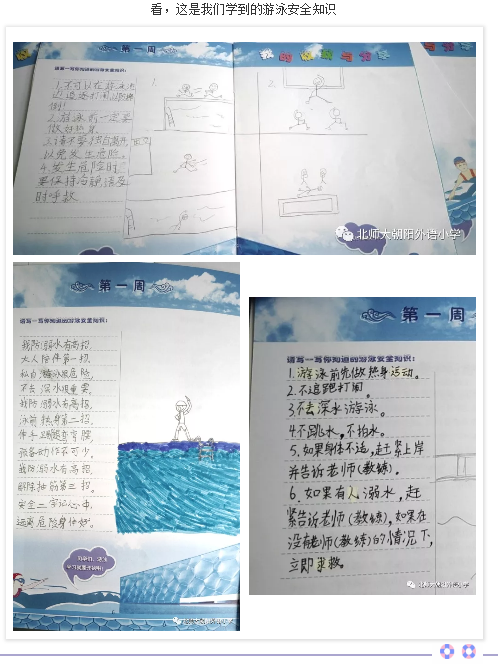 看，这是我们学到的游泳安全知识
第一周
我的
请写一写你知道的游泳安全知识：
1.不可以在游泳池
边追逐打闹,以防摔
倒!
2.游泳前一定要
做好热身。
以免发生危险。
4.发生危险时
要保持冷静,请及
时呼救
1.
2.
北师大朝阳外语小学
第一周
请写一写你知道的游泳安全知识：
我防溺水有高招,
大人陪伴第一招,
私自游泳很危险,
不去深水很重要,
我防溺水有高招,
泳前热身第二招,
伸手踢腿
准备动作不可少,
我防溺水有高招,
解除抽筋第三招,
安全二字记心中,
远离危险身体好。
北师大朝阳外语小学
第一周
请写一写你知道的游泳安全知识：
1.游泳前先做热身运动。
2.不追跑打闹。
3.不去深水游泳。
4.不跳水,不拍水。
5.如果身体不适,赶紧上岸
并告诉老师(教练)。
6.如果有人溺水,赶
紧告诉老师(教练),如果在
没有老师(教练)的情况下,
立即求救。
北师大朝阳外语小学